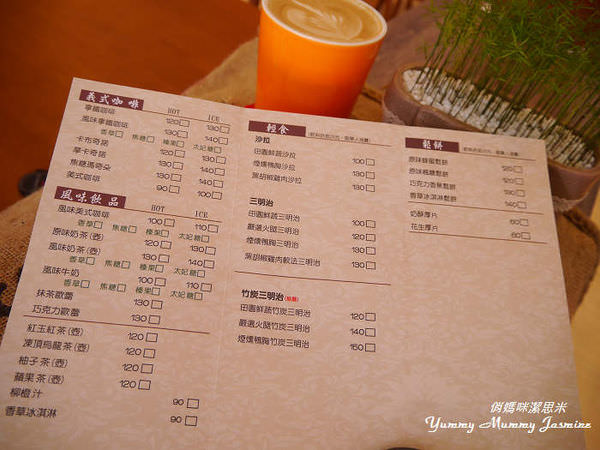 義式咖啡 HOT ICE
拿鐵咖啡 120 130
風味拿鐵咖啡 130 140
香草 焦糖 榛果 太妃糖
卡布奇諾 120 130
摩卡奇諾 130 140
焦糖瑪奇朵 130 140
美式咖啡 90 100
風味飲品 HOT ICE
風味美式咖啡 100 110
香草 焦糖 榛果 太妃糖
原味奶茶(壺) 120 130
風味奶茶(壺) 130 140
香草 焦糖 榛果 太妃糖
風味牛奶 130 140
香草 焦糖 榛果 太妃糖
抹茶歐蕾 130
巧克力歐蕾 130
紅玉紅茶(壺) 120
凍頂烏龍茶(壺) 120
柚子茶(壺) 120
蘋果茶(壺) 120
柳橙汁 90
香草冰淇淋 90
輕食
沙拉
田園鮮蔬沙拉 100
煙燻鴨胸沙拉 130
黑胡椒雞肉沙拉 130
三明治
田園鮮蔬三明治 100
嚴選火腿三明治 120
煙燻鴨胸三明治 130
黑胡椒雞肉軟法三明治 130
竹炭三明治
田園鮮蔬竹炭三明治 120
嚴選火腿竹炭三明治 140
煙燻鴨胸竹炭三明治 150
鬆餅
原味蜂蜜鬆餅 120
原味楓糖鬆餅 120
巧克力香蕉鬆餅 130
香草冰淇淋鬆餅 140
奶酥厚片 60
花生厚片 60
俏媽咪潔思米
Yummy Mummy Jasmine